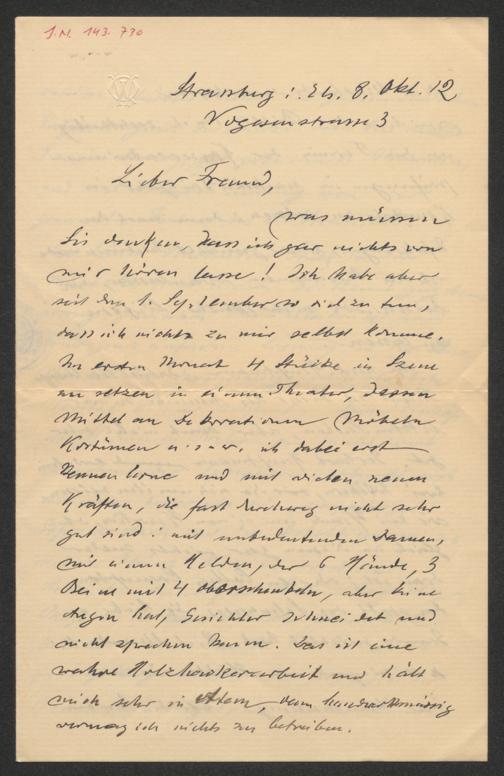 I.N. 143.730
Strassburg i. Els. 8. Okt. 12
Vogesenstrasse 3
Lieber Freund,
was müssen
Sie denken, dass ich gar nichts von
mir hören lasse! Ich habe aber
seit dem 1. September so viel zu tun,
dass ich nicht zu mir selbst komme.
Im ersten Monat 4 Stücke in Szene
zu setzen in einem Theater, dessen
Mittel an Dekorationen Möbeln
Kostümen u.s.w. ich dabei erst
kennen lerne und mit vielen neuen
Kräften, die fast durchweg nicht sehr
gut sind: mit unbedeutenden Damen,
mit einem Helden, der 6 Hände, 3
Beine mit 4 Oberschenkeln, aber keine
Augen hat, Gesichter schneidet und
nicht sprechen kann. Das ist eine
wahre Holzhackerarbeit und hält
mich sehr in Atem, denn handwerksmässig
vermag ich nichts zu betreiben.